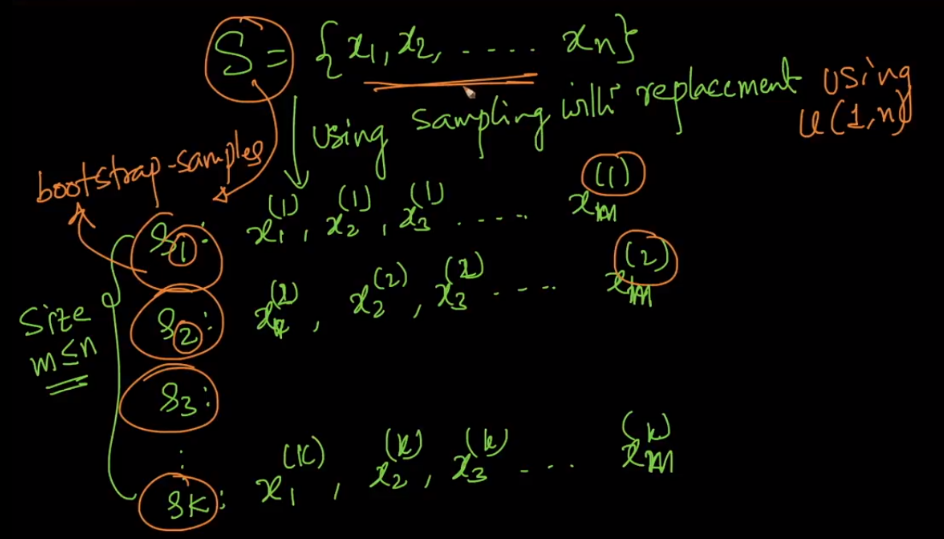 S = {x₁, x₂, ..... xₙ}
using sampling with replacement using
U(1,n)
bootstrap-samples
S₁: x₁⁽¹⁾, x₂⁽¹⁾, x₃⁽¹⁾ ..... xₘ⁽¹⁾
S₂: x₁⁽²⁾, x₂⁽²⁾, x₃⁽²⁾ ..... xₘ⁽²⁾
size
m≤n
S₃:
⋮
Sₖ: x₁⁽ᵏ⁾, x₂⁽ᵏ⁾, x₃⁽ᵏ⁾ ... xₘ⁽ᵏ⁾